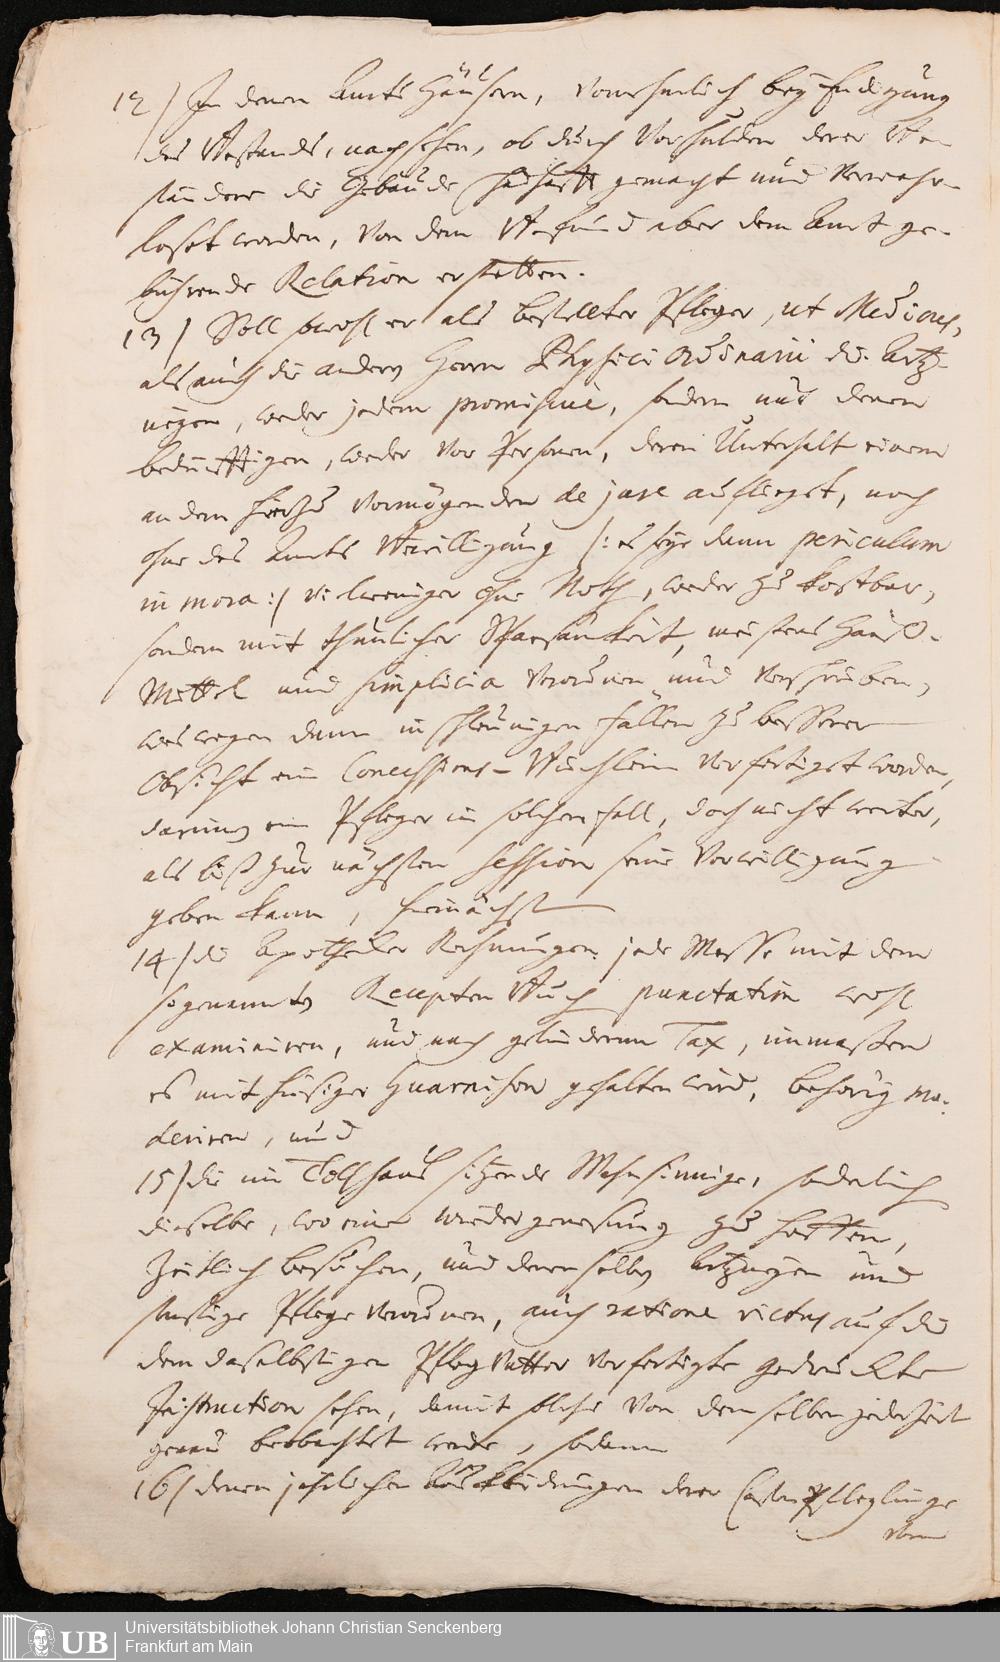 12) In denen Amts Häusern, vornehmlich bey Endigung
des Bestands, nachsehen, ob durch Verschulden derer Be-
ständere die Gebäude schadhafft gemacht und verwahr-
loset worden, von dem Befund aber dem Amt ge-
bührende Relation erstatten.
13) Soll sowohl er als bestellter Pfleger, ut Medicus,
als auch die andern Herrn Physici Ordinarii die Artz-
neyen, weder jedem promiscue, sondern nur denen
bedürfftigen, weder vor Personen, deren Unterhalt einem
andern hierzu vermögenden de jure auflieget, noch
ohne des Amts Bewilligung /: es seye dann periculum
in mora :/ vielweniger ohne Noth, weder zu kostbar,
sondern mit thunlicher Sparsamkeit, meistens Hauß-
Mittel und simplicia verordnen und verschreiben,
weswegen dann in schleunigen Fällen zu besserer
Obsicht ein Concessions-Büchlein verfertiget worden,
darinn ein Pfleger in solchem Fall, doch nicht weiter,
als biß zur nächsten Session seine Verwilligung
geben kann, hernächst
14) die Apothecker Rechnungen jede Messe mit dem
sogenannten Recepten Buch punctatim wohl
examiniren, und nach gelinderem Tax, immaßen
es mit hiesiger Guarnison gehalten wird, behörig mo-
deriren, und
15) die im Tollhauß sitzende Wahnsinnige, sonderlich
dieselbe, wo eine wiedergenesung zu hoffen,
zeitlich besuchen, und denenselben Artzneyen und
sonstige Pflege verordnen, auch ratione victus auf die
dem daselbstigen Pfleg Vatter verfertigte gedruckte
Instruction sehen, damit solche von demselben jederzeit
genau beobachtet werde, sodann
16) denen jährlichen Auskleidungen derer Casten Pfleglinge